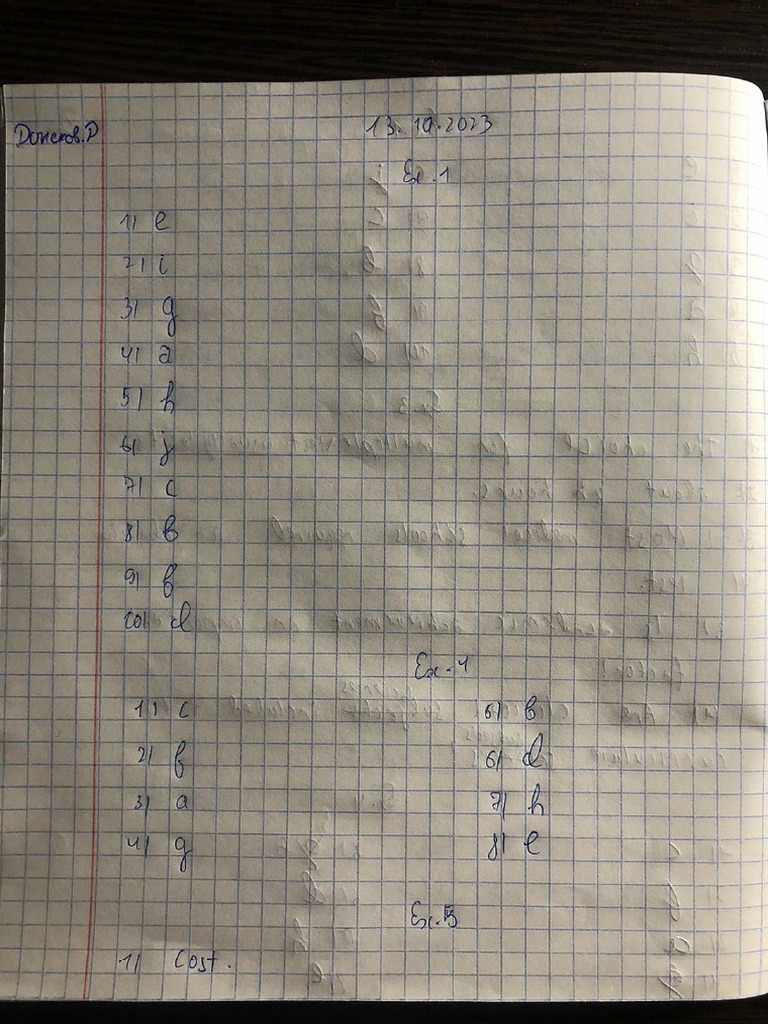 13.10.2023
Ex. 1
1) e
2) i
3) g
4) a
5) h
6) j
7) c
8) b
9) f
10) d
Ex-4
1) c 6) b
2) f 6) d
3) a 7) h
4) g 8) e
Ex.5
1) Cost.